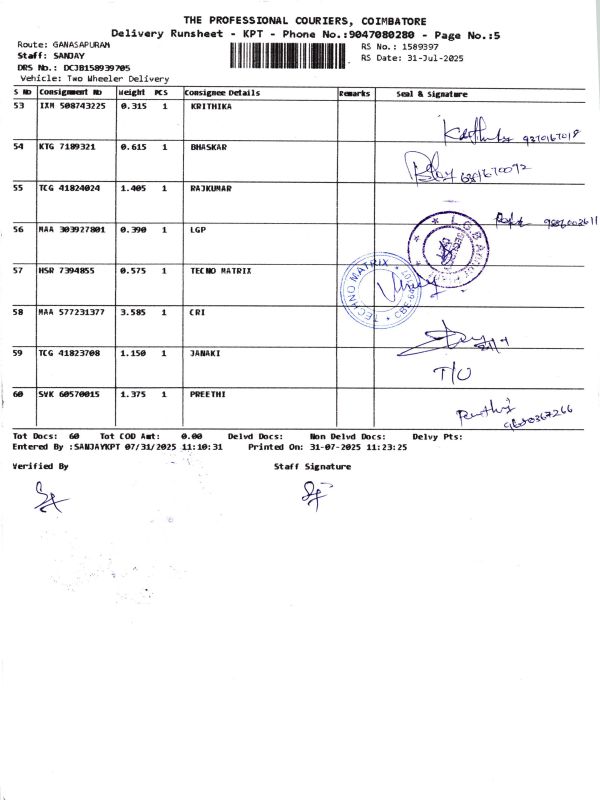 THE PROFESSIONAL COURIERS, COIMBATORE
Delivery Runsheet - KPT - Phone No.:9047080280 - Page No.:5
Route: GANASAPURAM
RS No.: 1589397
Staff: SANJAY
RS Date: 31-Jul-2025
DRS No.: DCJB158939705
Vehicle: Two Wheeler Delivery
S No Consignment No Weight PCS Consignee Details Remarks Seal & Signature
53 IXM 508743225 0.315 1 KRITHIKA
9370167019
54 KTG 7189321 0.615 1 BHASKAR
6381670092
55 TCG 41824024 1.405 1 RAJKUMAR
56 MAA 303927801 0.390 1 LGP
57 HSR 7394855 0.575 1 TECNO MATRIX
TECHNO MATRIX
58 MAA 577231377 3.585 1 CRI
59 TCG 41823708 1.150 1 JANAKI
T/O
60 SVK 60570015 1.375 1 PREETHI
Tot Docs: 60 Tot COD Amt: 0.00 Delvd Docs: Non Delvd Docs: Delvy Pts:
Entered By :SANJAYKPT 07/31/2025 11:10:31 Printed On: 31-07-2025 11:23:25
Verified By Staff Signature